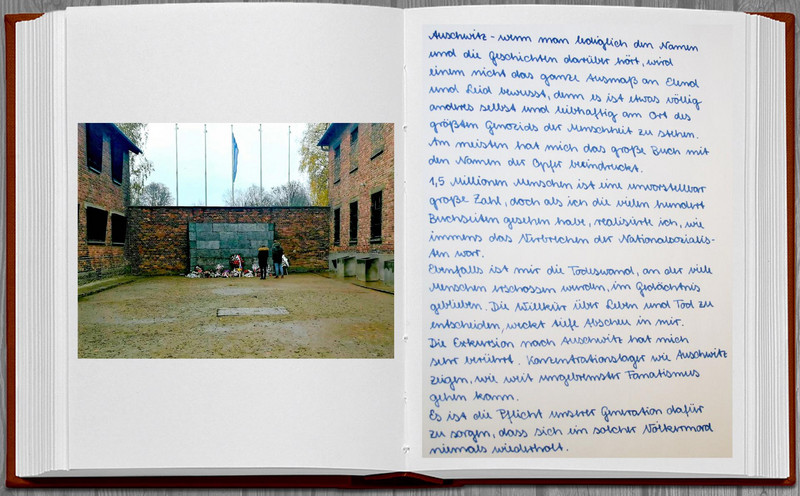 Auschwitz - wenn man lediglich den Namen
und die Geschichten darüber hört, wird
einem nicht das ganze Ausmaß an Elend
und Leid bewusst, denn es ist etwas völlig
anderes selbst und leibhaftig am Ort des
größten Genozids der Menschheit zu stehen.
Am meisten hat mich das große Buch mit
den Namen der Opfer beeindruckt.
1,5 Millionen Menschen ist eine unvorstellbar
große Zahl, doch als ich die vielen hundert
Buchseiten gesehen habe, realisierte ich, wie
immens das Verbrechen der Nationalsozialis-
ten war.
Ebenfalls ist mir die Todeswand, an der viele
Menschen erschossen wurden, im Gedächtnis
geblieben. Die Willkür über Leben und Tod zu
entscheiden, weckt tiefe Abscheu in mir.
Die Exkursion nach Auschwitz hat mich
sehr berührt. Konzentrationslager wie Auschwitz
zeigen, wie weit ungebremster Fanatismus
gehen kann.
Es ist die Pflicht unserer Generation dafür
zu sorgen, dass sich ein solcher Völkermord
niemals wiederholt.